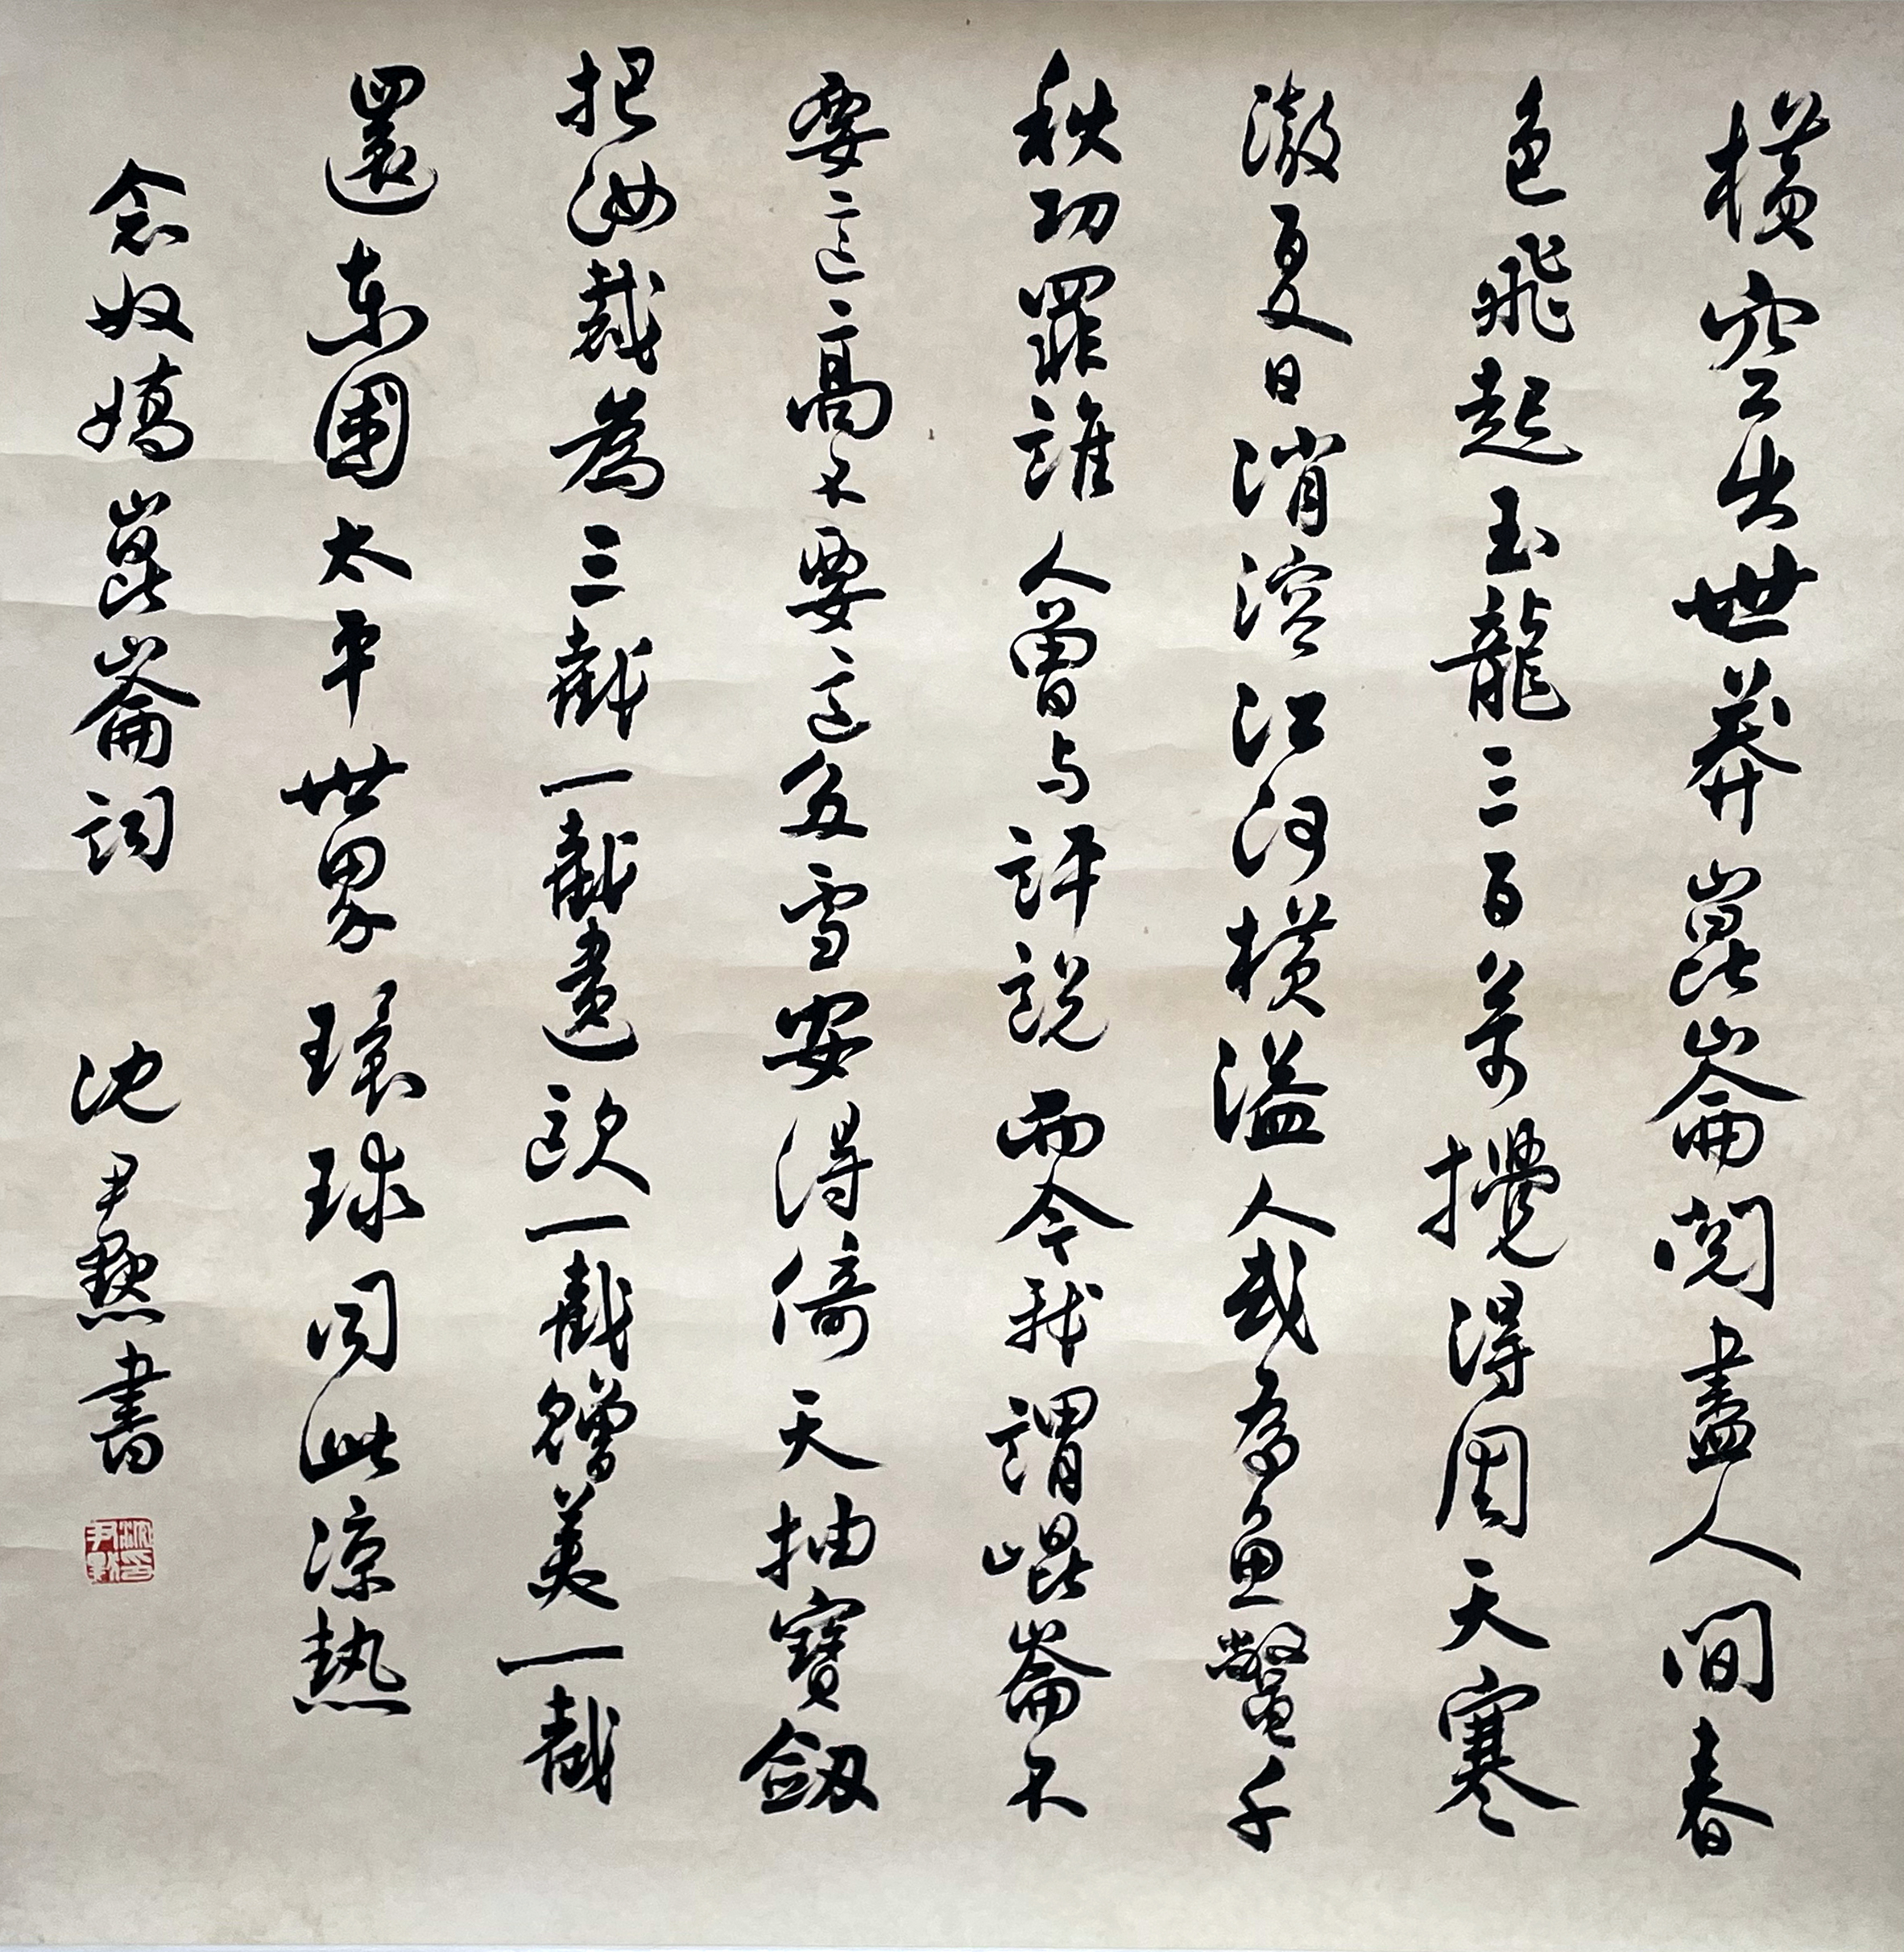 橫空出世莽崑崙閱盡人間春
色飛起玉龍三百萬攪得周天寒
澈夏日消溶江河橫溢人或為魚鱉千
秋功罪誰人曾与評說而今我謂崐崙不
要這高不要這多雪安得倚天抽寶劔
把汝裁為三截一截遺歐一截贈美一截
還東國太平世界環球同此涼熱
念奴嬌崑崙詞 沈尹默書
沈尹默印